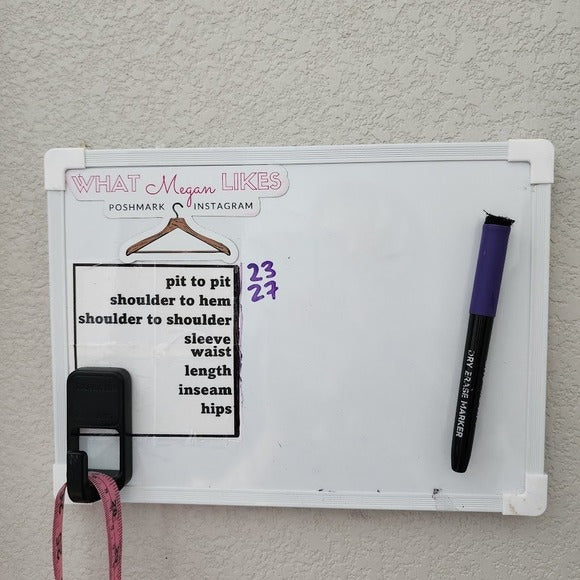 WHAT Megan LIKES
POSHMARK INSTAGRAM
pit to pit 23
shoulder to hem 27
shoulder to shoulder
sleeve
waist
length
inseam
hips
DRY ERASE MARKER